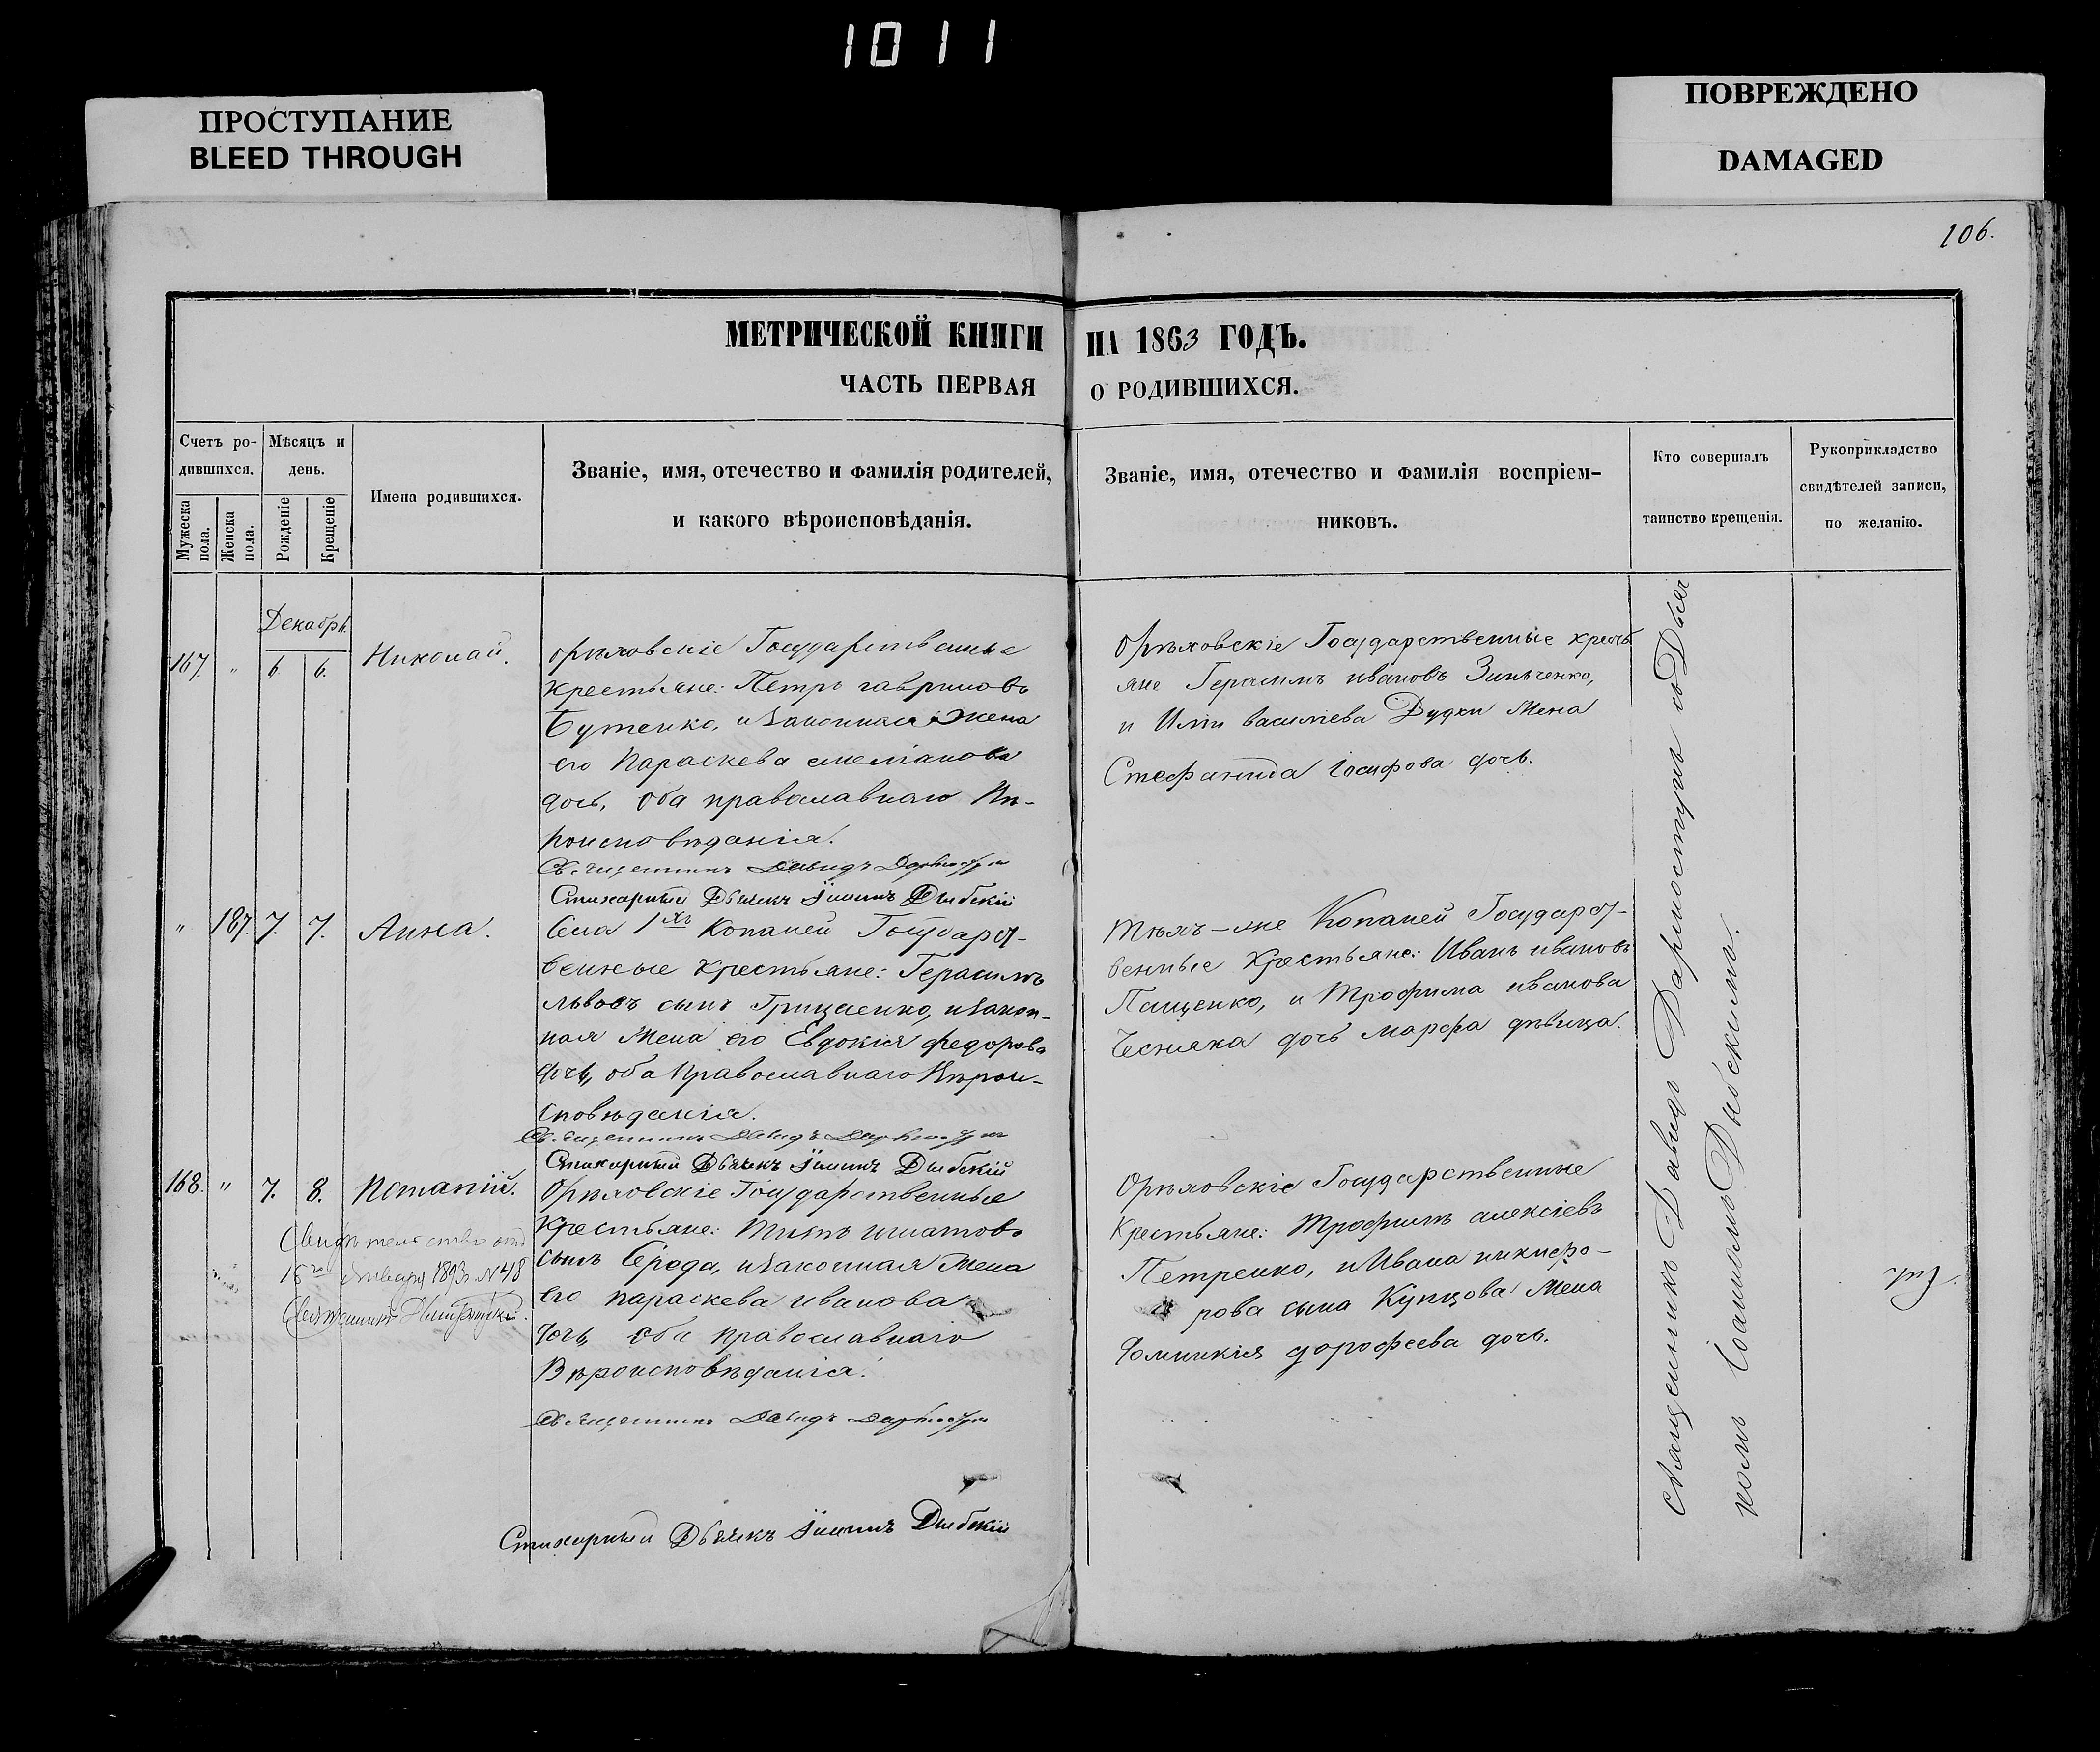 1011
ПРОСТУПАНИЕ
BLEED THROUGH
ПОВРЕЖДЕНО
DAMAGED
106.
МЕТРИЧЕСКОЙ КНИГИ НА 1863 ГОДЪ.
ЧАСТЬ ПЕРВАЯ О РОДИВШИХСЯ.
Счетъ ро-
дившихся.
Мужеска
пола.
Женска
пола.
Мѣсяцъ и
день.
Рожденіе
Крещеніе
Имена родившихся.
Званіе, имя, отечество и фамилія родителей,
и какого вѣроисповѣданія.
Званіе, имя, отечество и фамилія воспріем-
никовъ.
Кто совершалъ
таинство крещенія.
Рукоприкладство
свидѣтелей записи,
по желанію.
Декабрь
167. " 6. 6. Николай.
Орѣховскіе Государственные
крестьяне: Петръ гавриловъ
Бутенко, и законная жена
его Параскева емеліанова
дочь, оба православнаго Вѣ-
роисповѣданія.
Священникъ Давидъ
Стихарный Дьячекъ Іоаннъ Дыбскій
Орѣховскіе Государственные крестъ
яне Герасимъ ивановъ Зинченко,
и Иліи василіева Дудки Жена
Стефанида іосифова дочь.
" 187. 7. 7. Анна.
Села 1хъ Копаней Государст-
венные крестьяне: Герасимъ
львовъ сынъ Грицаенко, и закон-
ная Жена его Евдокія федорова
дочь, оба Православнаго Вѣрои-
сповѣданія.
Священникъ Давидъ
Стихарный Дьячекъ Іоаннъ Дыбскій
Тѣхъ-же Копаней Государст-
венные Крестьяне: Иванъ ивановъ
Пащенко, и Трофима иванова
Чесняка дочь марфа дѣвица.
168. " 7. 8. Потапій.
Свидѣтельство
15го Января 1893 г. № 48
Священникъ
Орѣховскіе Государственные
Крестьяне: Титъ игнатовъ
сынъ Середа, и законная Жена
его параскева иванова
дочь, оба православнаго
Вѣроисповѣданія.
Священникъ Давидъ
Стихарный Дьячекъ Іоаннъ Дыбскій
Орѣховскіе Государственные
Крестьяне: Трофимъ алексіевъ
Петренко, и Ивана никифо-
рова сына Купцова Жена
Домникія дорофеева дочь.
Священникъ Давидъ съ Дьяч
комъ Іоанномъ Дыбскимъ.